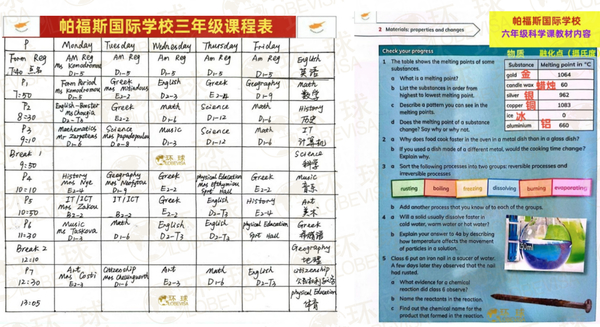 帕福斯国际学校三年级课程表
P Monday Tuesday Wednesday Thursday Friday
Form Reg AM Reg AM Reg AM Reg AM Reg AM Reg English
7:40 点名 D1-5 D1-5 D1-5 D1-5 英语
P1 Form Period Greek English Greek Geography math
7:50 D1-5 E2-2 D2-3 D1-9 数学
P2 English-Booster Greek Math Science Math History
8:30 E2-2 D1-6 D1-12 D1-6 历史
P3 Mathematics Science Music Science Math IT
9:10 D1-6 D1-3 D1-12 D1-6 计算机
Break 1 Science
9:30 科学
P4 History Geography Greek Physical Education Greek Music
10:10 E2-4 D1-9 E2-2 E2-2 音乐
P5 IT/ICT IT/ICT Greek English History Art
10:50 B2-2 B2-2 E2-2 D2-T3 E2-4 美术
P6 Music Math English English Physical Education Greek
11:30 D1-3 D1-6 D2-T3 D2-T3 希腊语
Break 2 Geography
12:10 地理
P7 Art Citizenship Art Math English citizenship
12:30 E2-3 D1-6 E2-3 D1-6 D2-T3
13:05 physical Education
体育
环球
2 Materials: properties and changes
帕福斯国际学校
六年级科学课教材内容
Check your progress
物质 融化点（摄氏度
1 The table shows the melting points of some substances.
Substance Melting point in °C
gold 金 1064
candle wax 蜡烛 60
silver 银 962
copper 铜 1083
ice 冰 0
aluminium 铝 660
a What is a melting point?
b List the substances in order from highest to lowest melting point.
c Describe a pattern you can see in the melting points.
d Does the melting point of a substance change? Say why or why not.
2 a Why does food cook faster in the oven in a metal dish than in a glass dish?
b If you used a dish made of a different metal, would the cooking time change? Explain why.
3 a Sort the following processes into two groups: reversible processes and irreversible processes
rusting boiling freezing dissolving burning evaporating
b Add another process that you know of to each of the groups.
4 a Will a solid usually dissolve faster in cold water, warm water or hot water?
b Explain your answer to 4a by describing how temperature affects the movement of particles in a solution.
5 Class 6 put an iron nail in a saucer of water. A few days later they observed that the nail had rusted.
a What evidence for a chemical reaction did class 6 observe?
b Name the reactants in the reaction.
c Find out the chemical name for the product that formed in the reaction.
环球